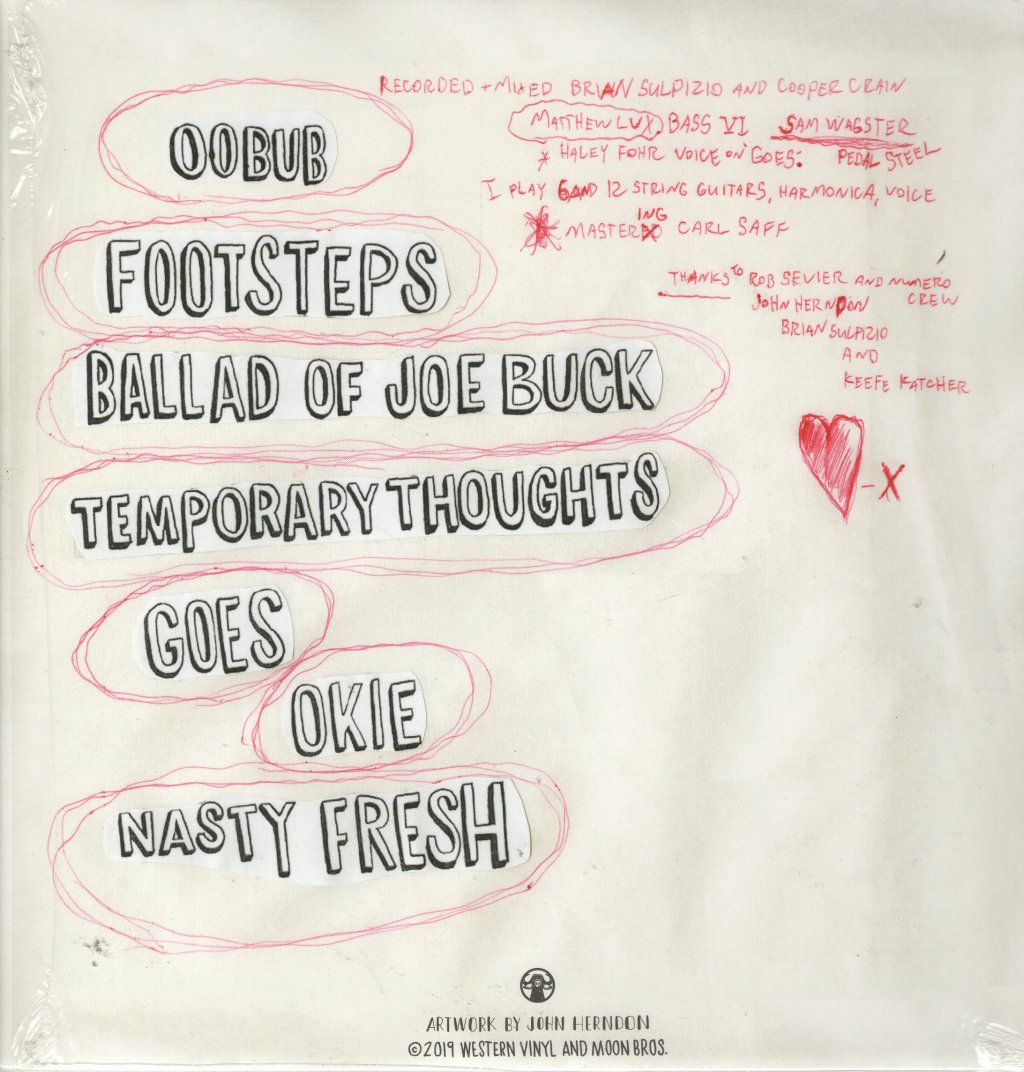 OOBUB
FOOTSTEPS
BALLAD OF JOE BUCK
TEMPORARY THOUGHTS
GOES
OKIE
NASTY FRESH
RECORDED + MIXED BRIAN SULPIZIO AND COOPER CRAIN
MATTHEW LUX BASS VI SAM WAGSTER
* HALEY FOHR VOICE ON "GOES: PEDAL STEEL
I PLAY 6 AND 12 STRING GUITARS, HARMONICA, VOICE
* MASTERING CARL SAFF
THANKS TO ROB SEVIER AND NUMERO
JOHN HERNDON CREW
BRIAN SULPIZIO
AND
KEEFE KATCHER
-X
ARTWORK BY JOHN HERNDON
©2019 WESTERN VINYL AND MOON BROS.